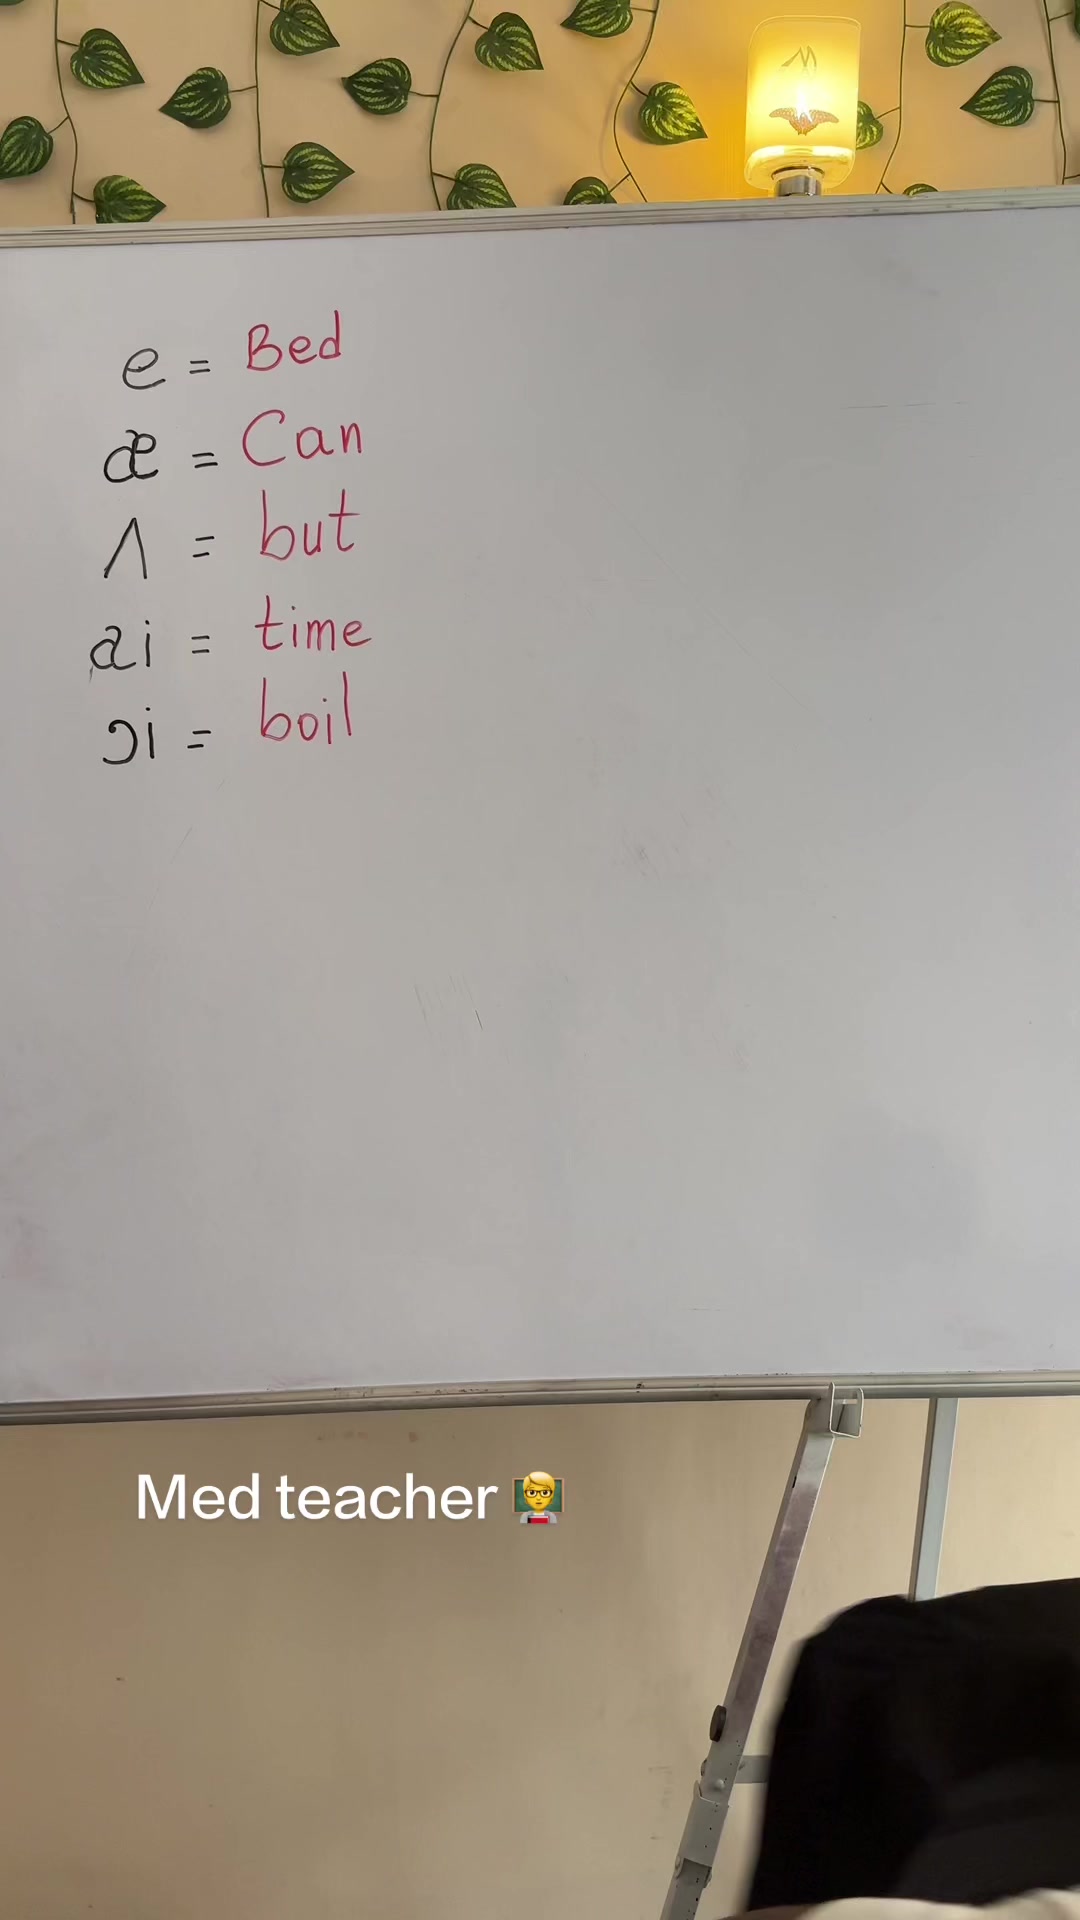 e = Bed
æ = Can
ʌ = but
ai = time
ɔi = boil
Med teacher 👨‍🏫